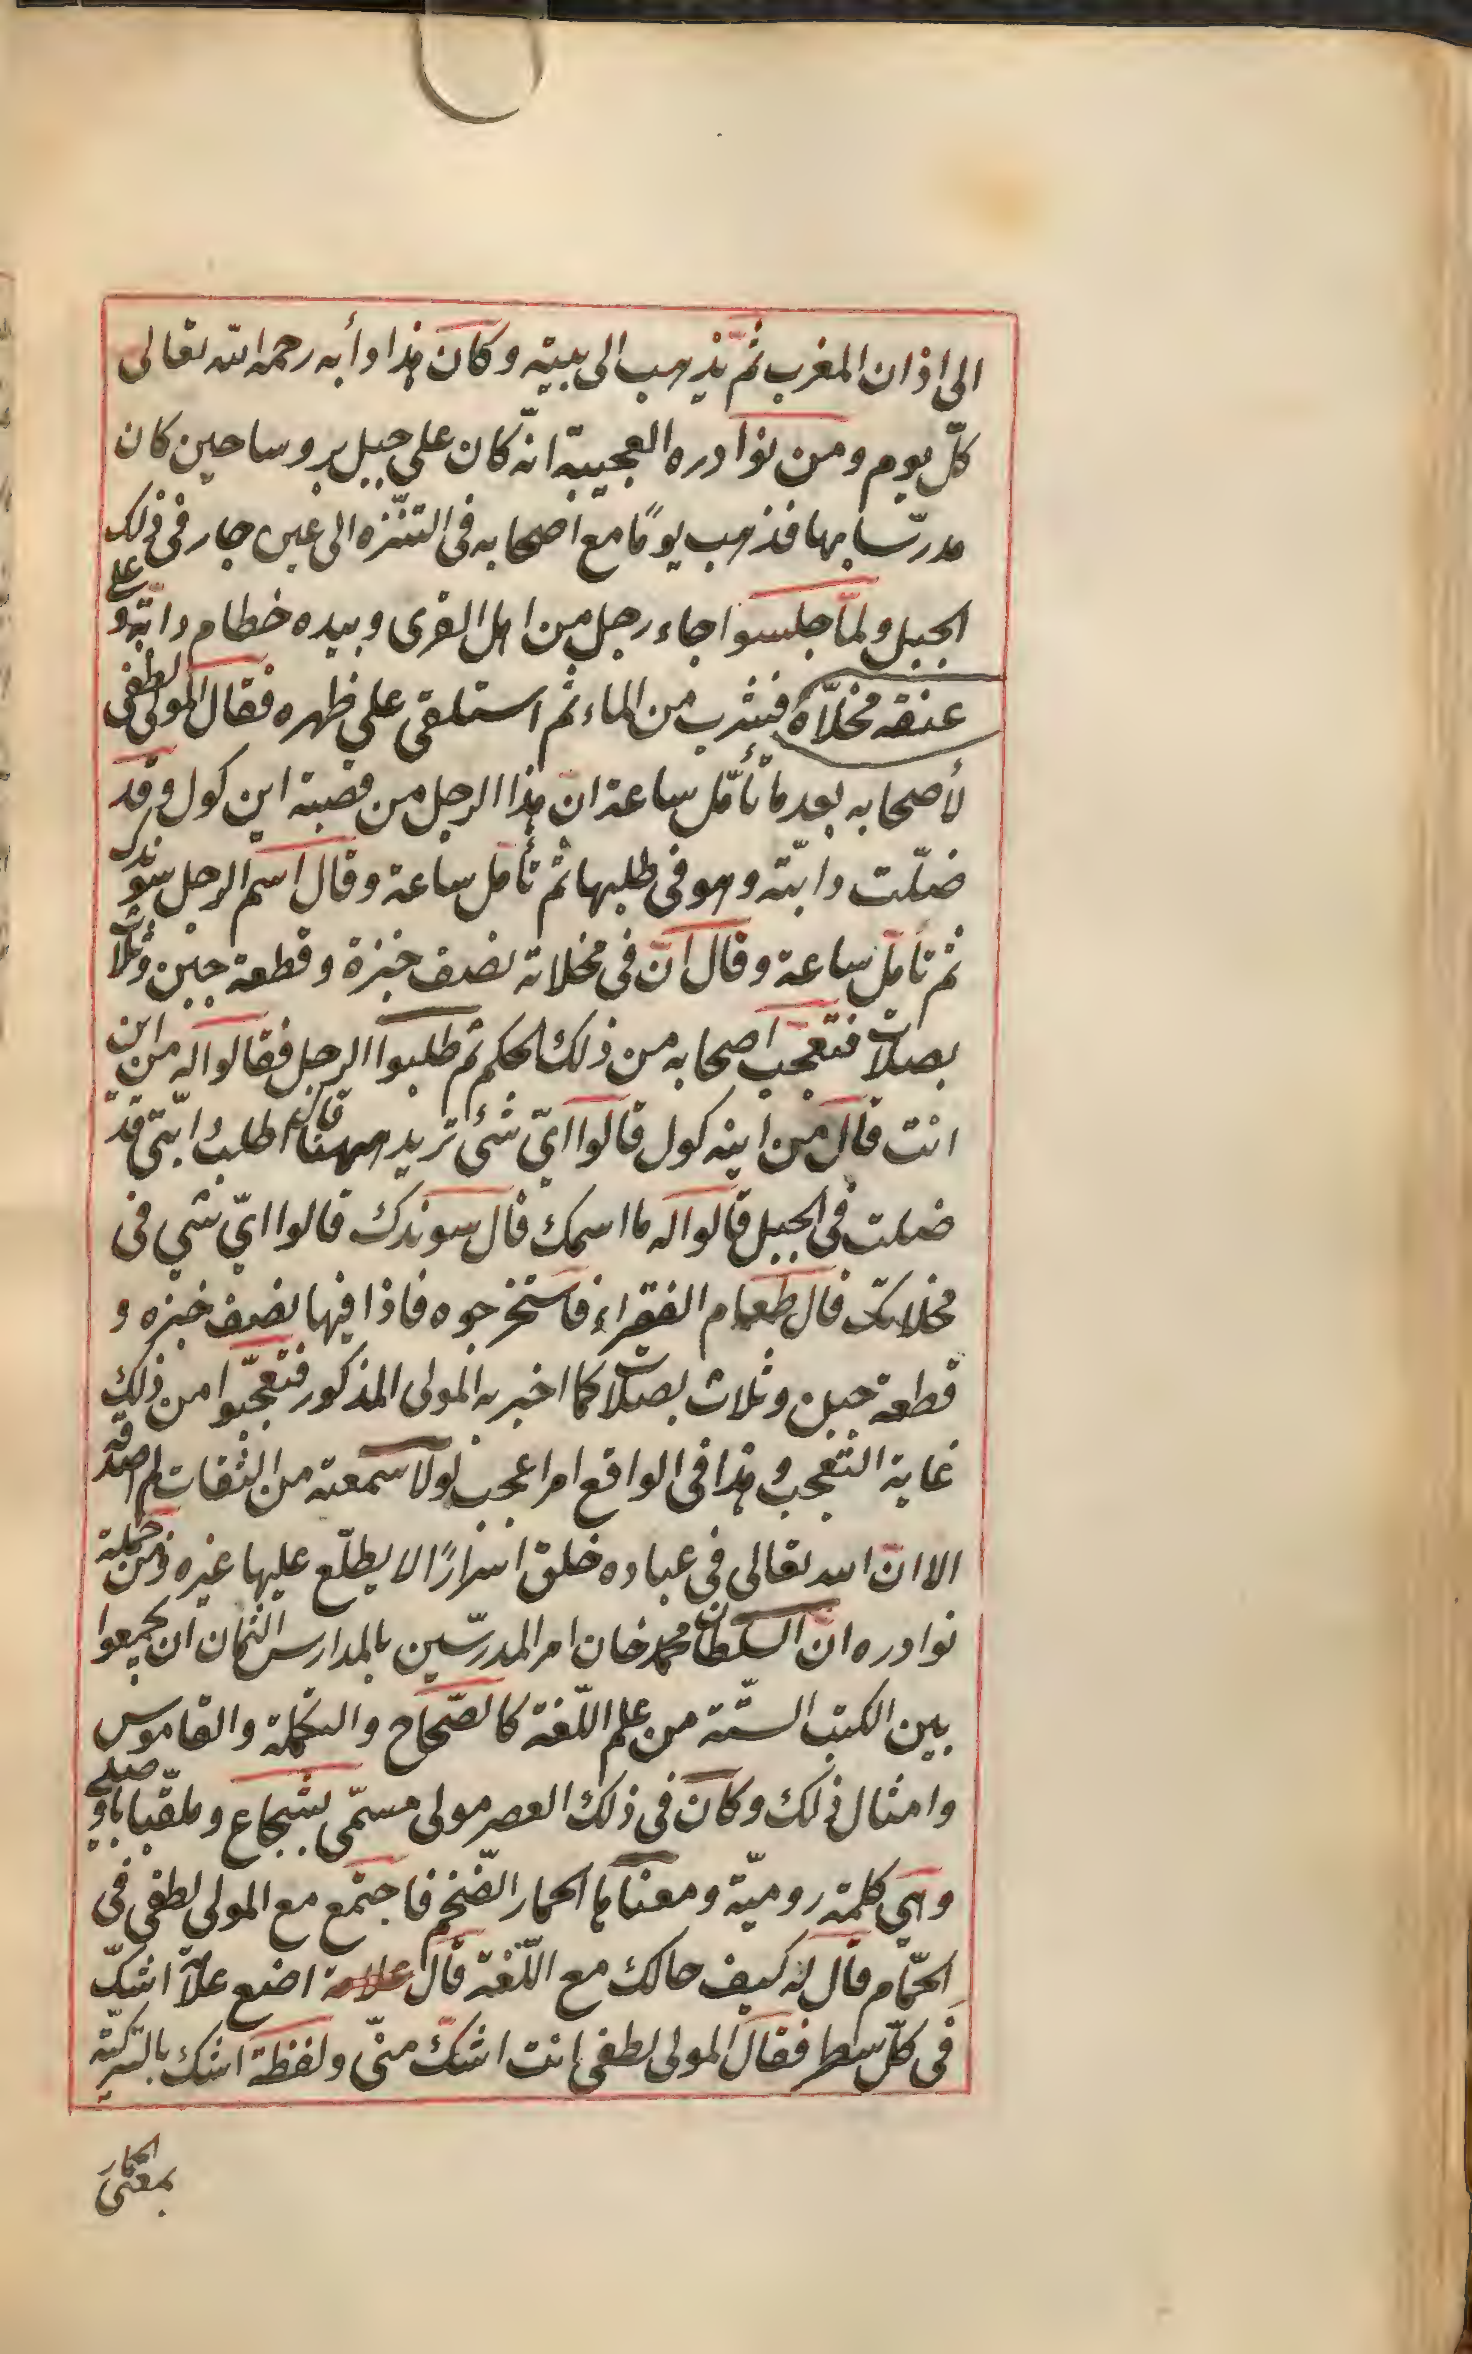 الى اذان المغرب ثمّ يذهب الى بيته وكان هذا دأبه رحمه الله تعالى
كلّ يوم ومن نوادره العجيبة انّه كان على جبل بروسا حين كان
مدرّسا بها فذهب يومًا مع اصحابه فى التنزّه الى عين جار فى ذلك
الجبل ولمّا جلسوا جاء رجل من اهل القرى وبيده خطام دابّة وعلى
عنقه مخلاّة فشرب من الماء ثم استلقى على ظهره فقال المولى لطفى
لأصحابه بعد ما تأمّل ساعة انّ هذا الرجل من قصبة اين كول وقد
ضلّت دابّته وهو فى طلبها ثم تأمل ساعة وقال اسم الرجل سوندك
ثم تأمل ساعة وقال انّ فى مخلاته نصف خبزة وقطعة جبن وثلاث
بصلات فتعجّب اصحابه من ذلك الحكم ثم طلبوا الرجل فقالوا له من اين
انت قال من اينه كول قالوا ايّ شئ تريد ههنا قال اطلب دابّتى قد
ضلت فى الجبل قالوا له ما اسمك قال سوندك قالوا ايّ شي فى
مخلاتك قال طعام الفقراء فاستخرجوه فاذا فيها نصف خبزه و
قطعة جبن وثلاث بصلات كما اخبر به المولى المذكور فتعجّبوا من ذلك
غاية التعجب وهذا فى الواقع امر اعجب لولا سمعته من الثقات لم اصدقه
الا انّ الله تعالى فى عباده خلق اسرارًا لا يطلّع عليها غيره ومن جملة
نوادره انّ السلطان محمد خان امر المدرّسين بالمدارس الثمان ان يجمعوا
بين الكتب الستّة من علم اللّغة كالصّحاح والتكملة والقاموس
وامثال ذلك وكان فى ذلك العصر مولى مسمّى بشجاع وملقّبا باوصلى
وهى كلمة روميّة ومعناها الحمار الضّخم فاجتمع مع المولى لطفى فى
الحمّام قال له كيف حالك مع اللّغة قال علامة اضع علا اشكّ
فى كلّ سطر فقال المولى لطفى انت اشكّ منّى ولفظة اشك بالتركيّة
بمعنى الحمار